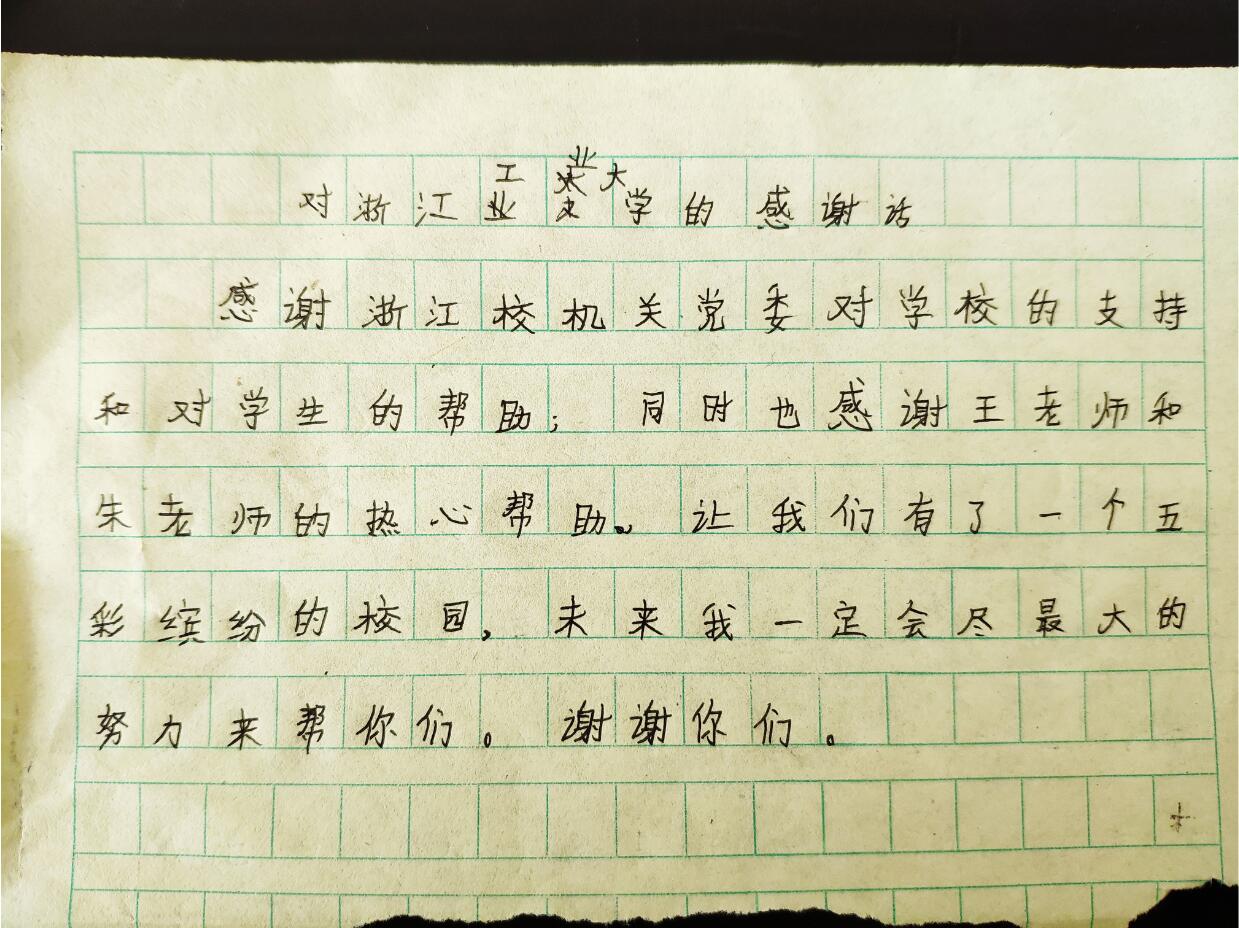 对浙江工业大学的感谢话
感谢浙江校机关党委对学校的支持
和对学生的帮助；同时也感谢王老师和
朱老师的热心帮助。让我们有了一个五
彩缤纷的校园，未来我一定会尽最大的
努力来帮你们。谢谢你们。